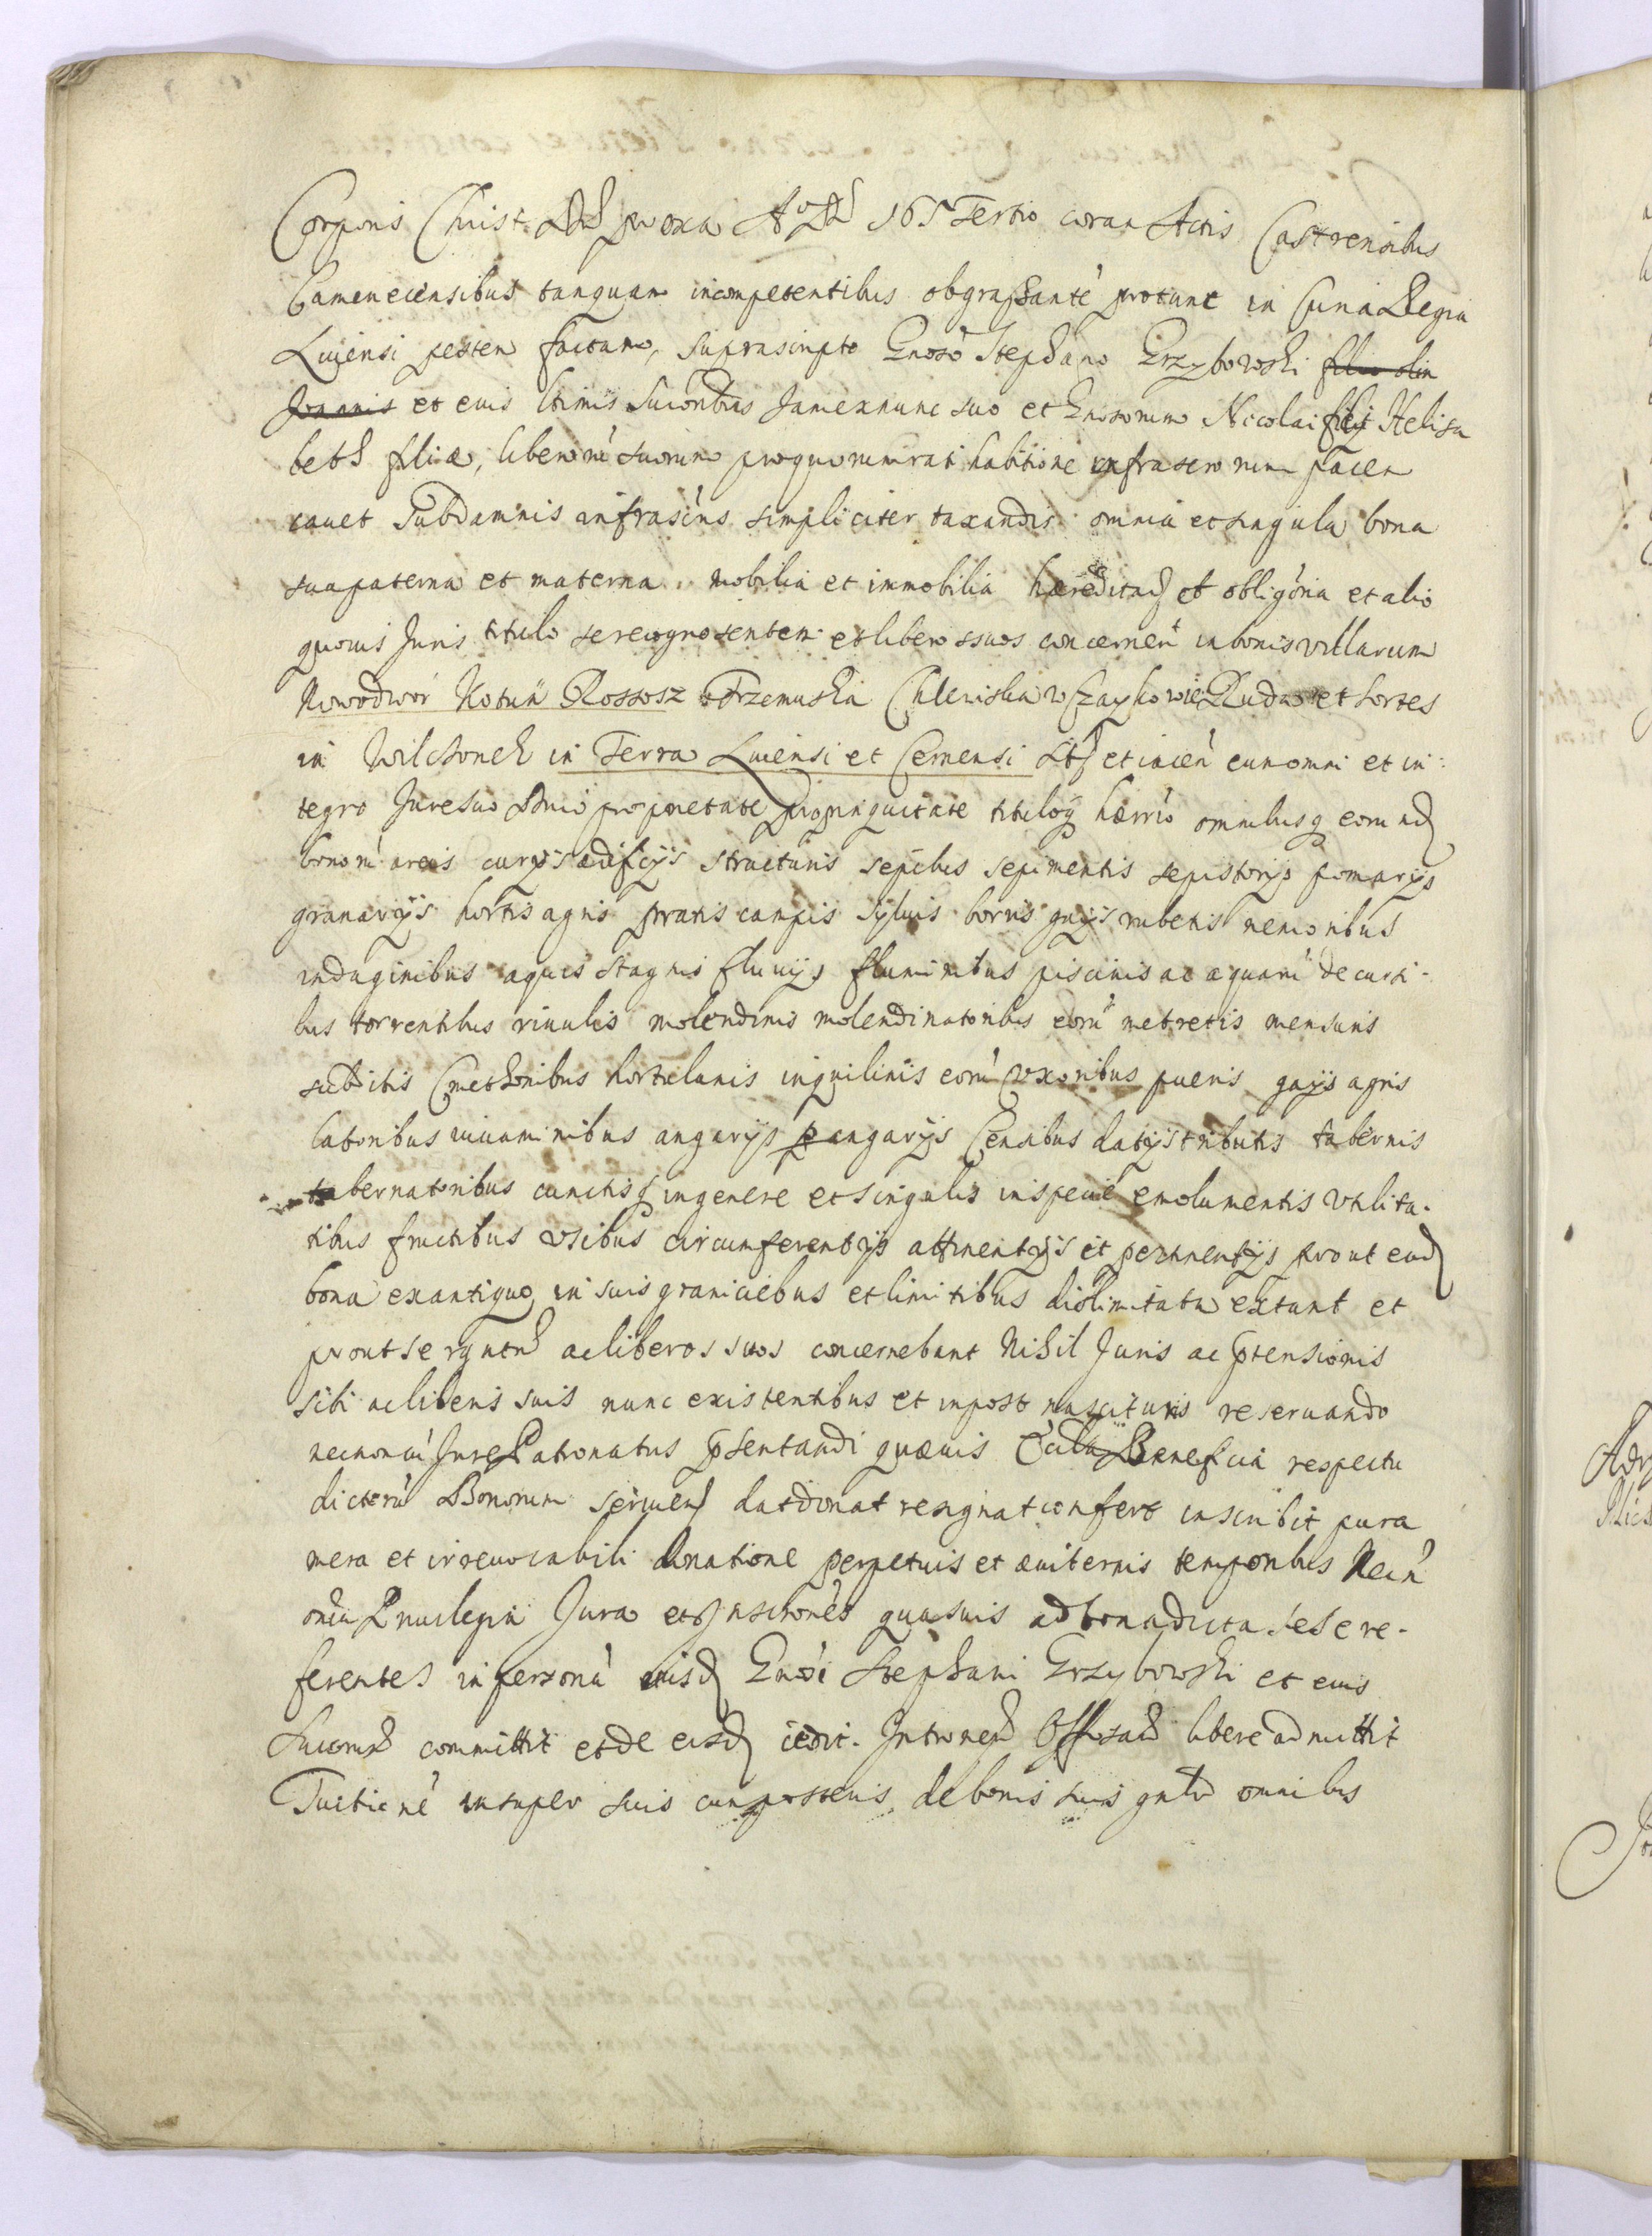 Corporis Christi proxa Aº 165 Tertio coram Actis Castrensibus
Camenecensibus tanquam incompetentibus obgrassantè protunc in Curia Regia
Luiensi pestem factam, suprascripto Gnoso Stephano Grzybowski filio olim
Joannis et eius ltimis Succoribus jamexnunc suo et Gnosorum Nicolai filij Helisa
beth filiæ, liberorū suorum proquorumrati habitione infrascrorum facien
cauet Subdamnis infrascris simpliciter taxandis omnia etsingula bona
suapaterna et materna mobilia et immobilia hæreditad et obligoria et alio
quouis Juris titulo serecognosentem et liberossuos concernen inbonis villarum
Nowodwor Kotuń Rossosz Trzemuska Chlewiska Czaykowie Ruda et sortes
in Wilchonek in Terra Luiensi et Cernensi sits etiacen cumomni et in:
tegro Juresuo Dnio proprietate propinquitate tituloq hærrio omnibusq eorund
bonorū areis curijs ædificijs structuris sepibus sepimentis sepistorijs pomarijs
granarijs hortis agris pratis campis syluis borris gaijs rubetis nemoribus
indaginibus aquis stagnis fluuijs fluminibus piscinis ac aquarū decursi-
bus torrentibus riuulis molendinis molendinatoribus eorū metretis mensuris
subditis Cmethonibus hortulanis inquilinis eorū vxoribus pueris gajis agris
laboribus iuuaminibus angarijs perangarijs Censibus datijs tributis tabernis
tabernatoribus cunctisq ingenere et singulis inspecie emolumentis vtilita-
tibus fructibus vsibus circumferentijs attinentijs et pertinentijs prout ead
bona exantiquo in suis graniciebus et limitibus dislimitata extant et
prout se rgntm acliberos suos concernebant Nihil Juris ac ptensionis
sibi acliberis suis nunc existentibus et inpost nascituris reseruando
necnoncū Jure Patronatus psentandi quæuis Beneficia respectu
dictorū Bonorum seruien dat donat resignat confert inscribit pura
mera et irreuocabili donatione perpetuis et æuiternis temporibus Necn
omia Priuilegia Jura et Inscriones quæuis ad bona dicta sese re-
ferentes inpersonā eiusd Gnosi Stephani Grzybowski et eius
Succorum committit et de eisd cedit. Intromem Offlosam libere admittit
Tuitionē insuper suis cumposteris debonis suis gnlr omnibus